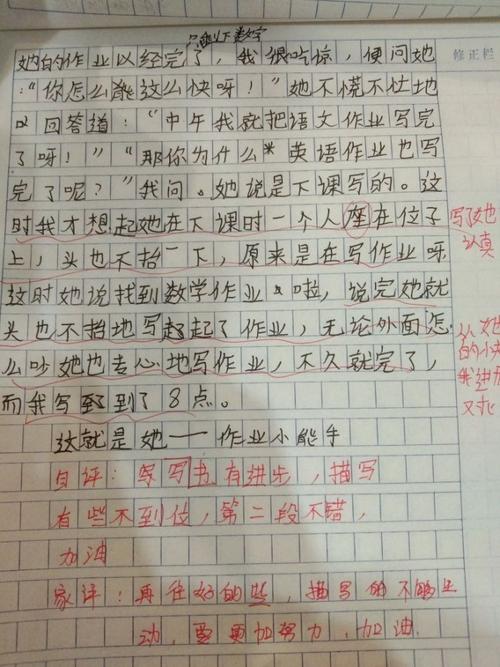 只剩下数学
她的作业以经完了，我很吃惊，便问她
修正栏
：“你怎么能这么快呀！”她不慌不忙地
回答道：“中午我就把语文作业写完
了呀！”“那你为什么英语作业也写
完了呢？”我问。她说是下课写的。这
时我才想起她在下课时一个人座在位子
写了她
上，头也不抬一下，原来是在写作业呀
认真
这时她说找到数学作业啦，说完她就
头也不抬地写起了作业，无论外面怎
从她
么吵她也专心地写作业，不久就完了，
的
我进
而我写到了8点。
又
这就是她——作业小能手
自评：写书有进步，描写
有些不到位，第二段不错，
加油
家评：再往好的些，描写的不够生
动，要更加努力，加油.